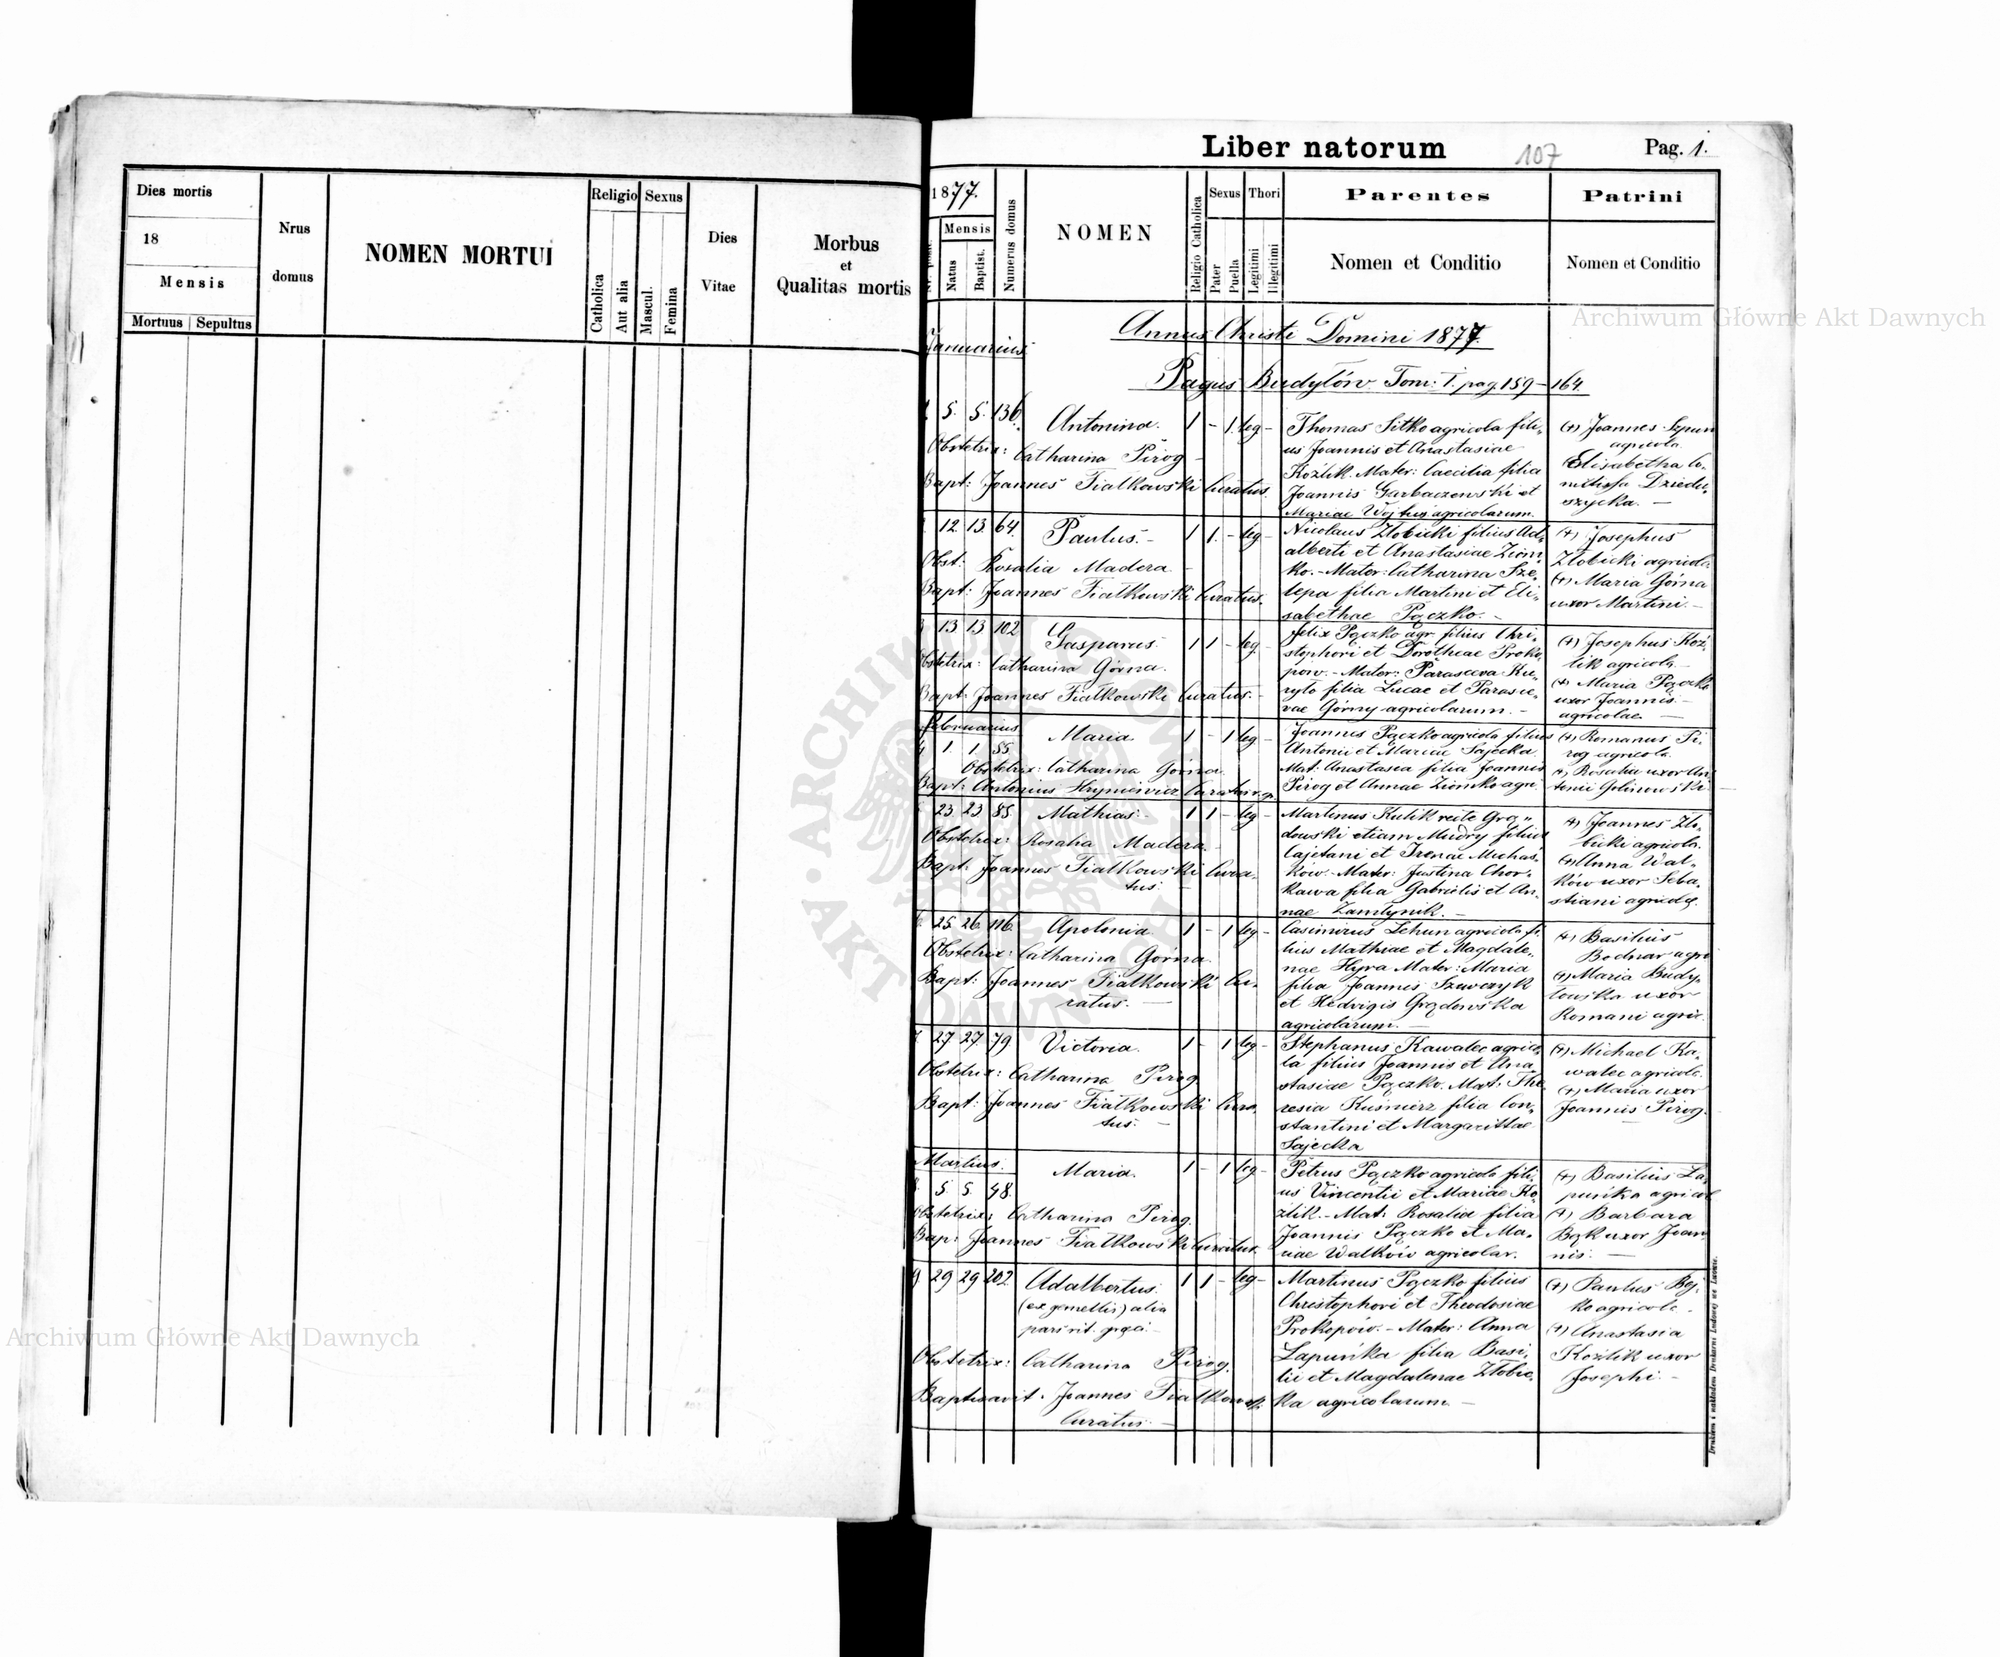 Dies mortis
18
Mensis
Mortuus | Sepultus
Nrus
domus
NOMEN MORTUI
Religio
Catholica
Aut alia
Sexus
Mascul.
Femina
Dies
Vitae
Morbus
et
Qualitas mortis
Liber natorum
107
Pag. 1.
1877.
Mensis
Natus
Baptist.
Numerus domus
NOMEN
Religio Catholica
Sexus
Puer
Puella
Thori
Legitimi
Illegitimi
Parentes
Nomen et Conditio
Patrini
Nomen et Conditio
Annus Christi Domini 1877.
Januarius
Pagus Budyłów Tom: I. pag. 159-164.
5. 5. 136. Antonina. 1 - 1. leg -
Obstetrix: Catharina Pirog -
Bapt: Joannes Fiałkowski Curatus.
Thomas Sitko agricola fili-
us Joannis et Anastasiae
Koźlik. Mater: Caecilia filia
Joannis Garbaczewski et
Mariae Wojtus agricolarum.
(+) Joannes
agricola.
Elisabetha Co-
mitissa Dziedu-
szycka. -
12. 13. 64. Paulus. - 1 1. - leg -
Obst: Rosalia Madera -
Bapt: Joannes Fiałkowski Curatus.
Nicolaus Złobicki filius Ad-
alberti et Anastasiae Ziom-
ko. - Mater: Catharina Sze-
lepa filia Martini et Eli-
sabethae Pączko. -
(+) Josephus
Złobicki agricola
(+) Maria Górna
uxor Martini. -
13 13 102 Gasparus. 1 1 - leg. -
Obstetrix: Catharina Górna.
Bapt: Joannes Fiałkowski Curatus. -
Felix Pączko agr. filius Chri-
stophori et Dorotheae Proko-
pow. - Mater: Parasceva Ku-
ryło filia Lucae et Parasce-
vae Górny agricolarum. -
(+) Josephus Koź-
lik agricola. -
(+) Maria Pączko
uxor Joannis -
agricolae. -
Februarius
4 1. 1. 55. Maria. 1 - 1 leg -
Obstetrix: Catharina Górna.
Bapt: Antonius Hryniewicz
Joannes Pączko agricola filius
Antonii et Mariae Sajecka.
Mat: Anastasia filia Joannis
Pirog et Annae Ziomko agr.
(+) Romanus Pi-
rog agricola.
(+) Rosalia uxor An-
tonii Golinowski
23. 23. 85. Mathias. - 1 1 - leg -
Obstetrix: Rosalia Madera. -
Bapt: Joannes Fiałkowski Cura-
tus. -
Martinus Kulik recte Grą-
dowski etiam Mudry filius
Cajetani et Irenae Michaś-
ków. - Mater: Justina Chor-
kawa filia Gabrielis et An-
nae Zamłynik. -
(+) Joannes Zło-
bicki agricola.
(+) Anna Wał-
ków uxor Seba-
stiani agricolae.
25. 26. 116. Apolonia. 1 - 1 leg -
Obstetrix: Catharina Górna.
Bapt: Joannes Fiałkowski Cu-
ratus. -
Casimirus Lehun agricola fi-
lius Mathiae et Magdale-
nae Hyra Mater: Maria
filia Joannis Szewczyk
et Hedvigis Grądowska
agricolarum. -
(+) Basilius
Bodnar agr.
(+) Maria Budy-
łowska uxor
Romani agric.
27. 27. 79. Victoria. 1 - 1 leg -
Obstetrix: Catharina Pirog.
Bapt: Joannes Fiałkowski Cura-
tus. -
Stephanus Kawalec agrico-
la filius Joannis et Ana-
stasiae Pączko. Mat: The-
resia Kuśnierz filia Con-
stantini et Margarittae
Sajecka
(+) Michael Ka-
walec agricola.
(+) Maria uxor
Joannis Pirog.
-
Martius.
5. 5. 48. Maria. 1 - 1 leg -
Obstetrix: Catharina Pirog.
Bap: Joannes Fiałkowski Curatus.
Petrus Pączko agricola fili-
us Vincentii et Mariae Ko-
zlik. - Mat: Rosalia filia
Joannis Pączko et Ma-
riae Wałków agricolar.
(+) Basilius Ła-
puńka agricol
(+) Barbara
Bąk uxor Joan-
nis. -
9 29 29 202. Adalbertus. 1 1 - leg -
(ex gemellis) alia
pars rit. graeci. -
Obstetrix: Catharina Pirog.
Baptisavit. Joannes Fiałkowski
Curatus. -
Martinus Pączko filius
Christophori et Theodosiae
Prokopów. - Mater: Anna
Łapuńka filia Basi-
lii et Magdalenae Złobic-
ka agricolarum. -
(+) Paulus Boj-
ko agricola -
(+) Anastasia
Koźlik uxor
Josephi. -
Drukiem i nakładem Drukarni Ludowej we Lwowie.
Archiwum Główne Akt Dawnych
Archiwum Główne Akt Dawnych
ARCHIWUM GŁÓWNE
AKT DAWNYCH